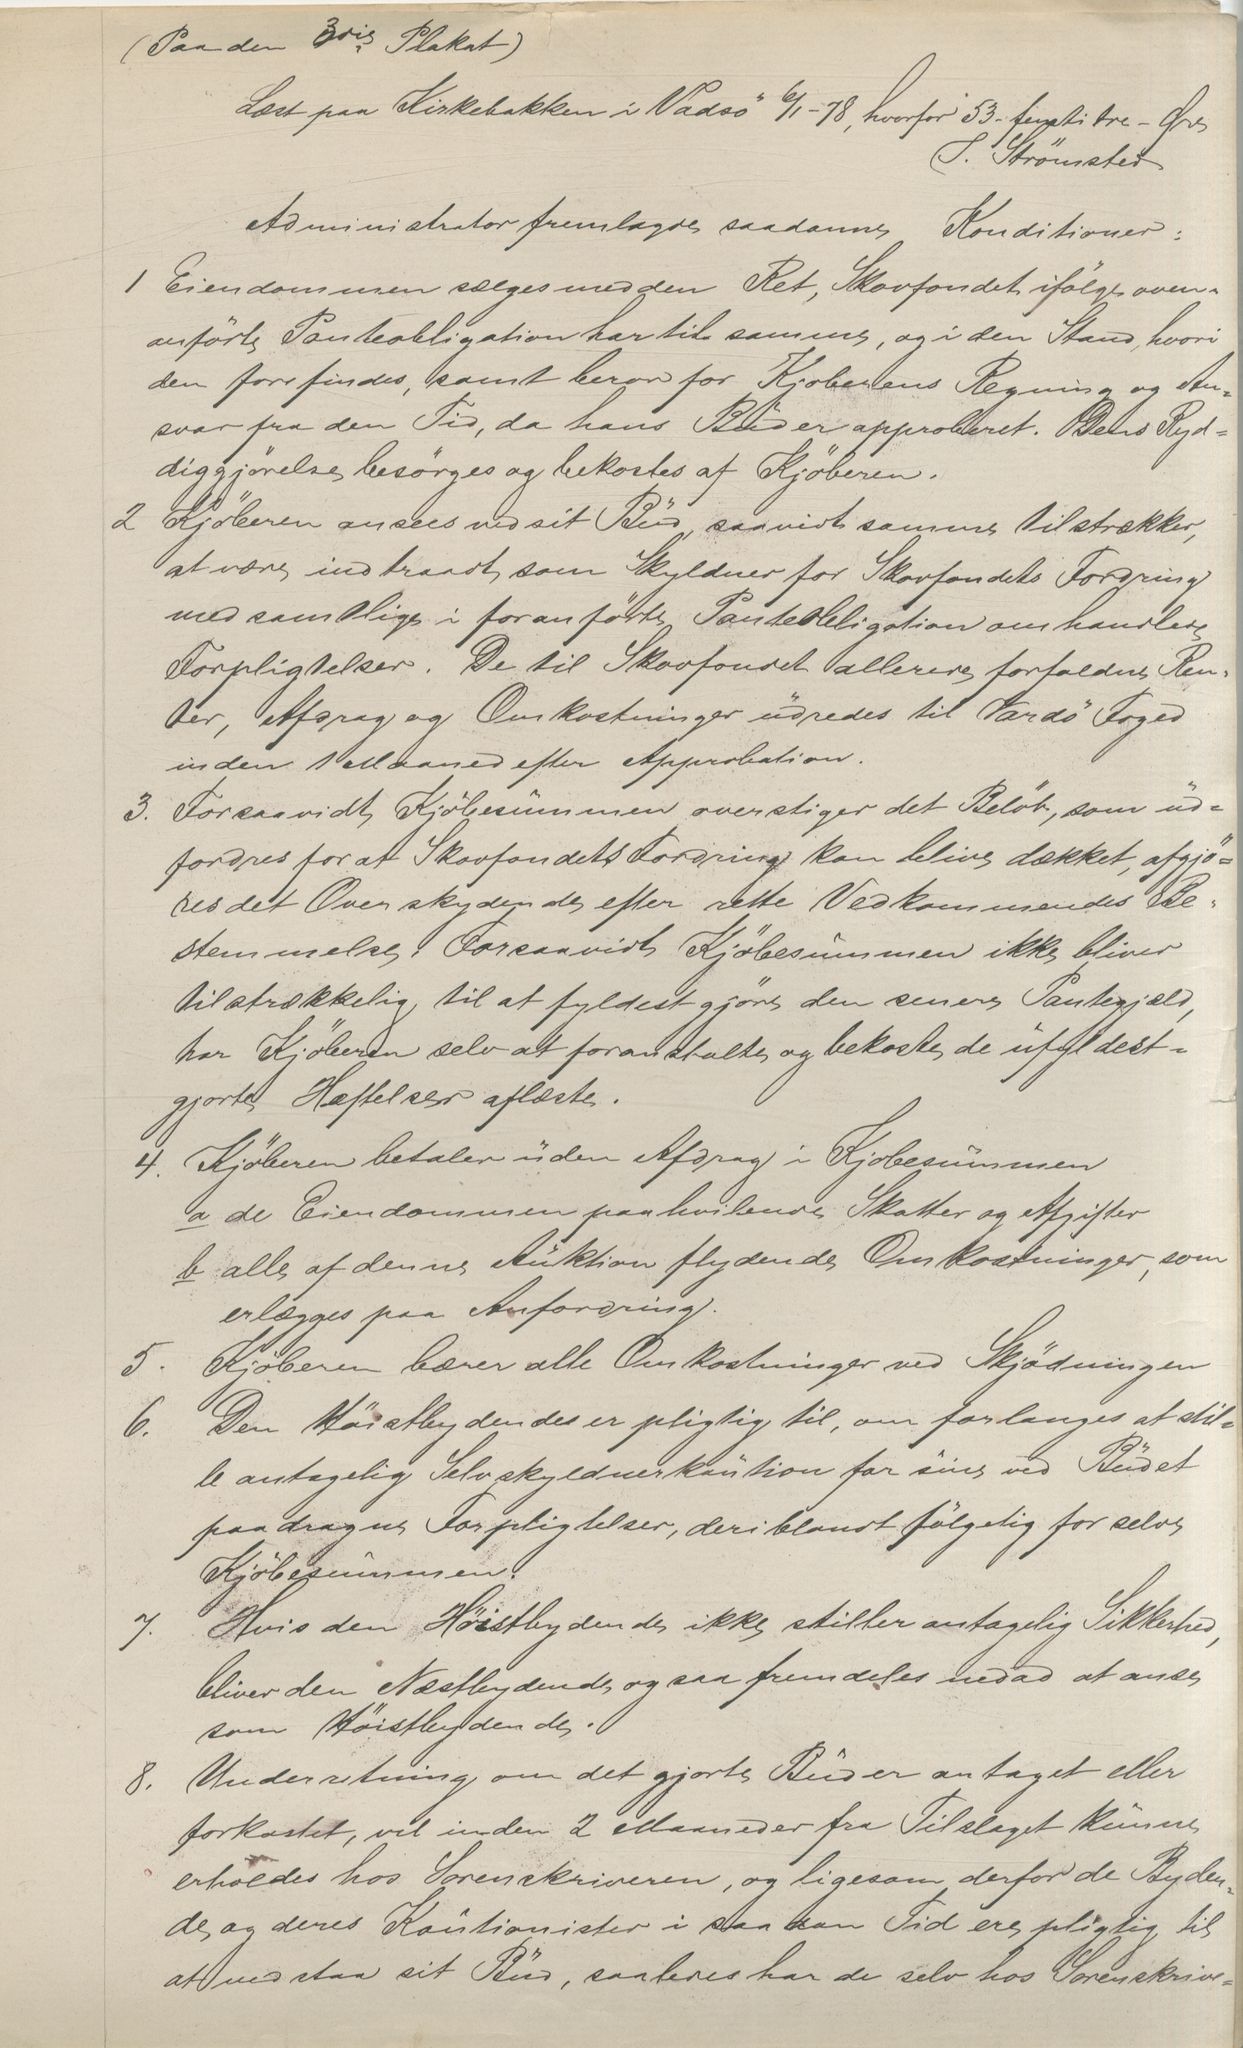 (Paa den 3die Plakat)
Læst paa Kirkebakken i Vadsö 6/1-78, hvorfor 53 - femti tre - Øre
S. Strömsted
Administrator fremlagde saadanne Konditioner:
1 Eiendommen sælges med den Ret, Skovfondet ifölge oven-
anförte Panteobligation har til samme, og i den Stand, hvori
den forefindes, samt beror for Kjøberens Regning og An-
svar fra den Tid, da hans Bud er approberet. Dens Ryd-
diggjörelse besörges og bekostes af Kjöberen.
2 Kjöberen ansees ved sit Bud, saavidt samme tilstrækker,
at være indtraadt som Skyldner for Skovfondets Fordring
med samtlige i foranförte Panteobligation omhandlede
Forpligtelser. De til Skovfondet allerede forfaldne Ren-
ter, Afdrag og Omkostninger udredes til Vardö Foged
inden 1 Maaned efter Approbation.
3. Forsaavidt Kjöbesummen overstiger det Belöb, som ud-
fordres for at Skovfondets Fordring kan blive dækket, afgjö-
res det Overskydende efter rette Vedkommendes Be-
stemmelse. Forsaavidt Kjöbesummen ikke bliver
tilstrækkelig til at fyldestgjöre den senere Pantegjæld,
har Kjöberen selv at foranstalte og bekoste de ufyldest-
gjorte Hæftelser aflæste.
4. Kjöberen betaler uden Afdrag i Kjöbesummen
a de Eiendommen paahvilende Skatter og Afgifter
b alle af denne Auktion flydende Omkostninger, som
erlægges paa Anfordring.
5. Kjöberen bærer alle Omkostninger ved Skjödningen
6. Den Höistbydende er pligtig til, om forlanges at stil-
le antagelig Selvskyldnerkaution for sine ved Budet
paadragne Forpligtelser, deriblandt fölgelig for selve
Kjöbesummen.
7. Hvis den Höistbydende ikke stiller antagelig Sikkerhed,
bliver den Næstbydende og saa fremdeles nedad at anse
som Höistbydende.
8. Underretning om det gjorte Bud er antaget eller
forkastet, vil inden 2 Maaneder fra Tilslaget kunne
erholdes hos Sorenskriveren, og ligesom derfor de Byden-
de og deres Kautionister i saadan Tid ere pligtig til
at vedstaa sit Bud, saaledes har de selv hos Sorenskrive-